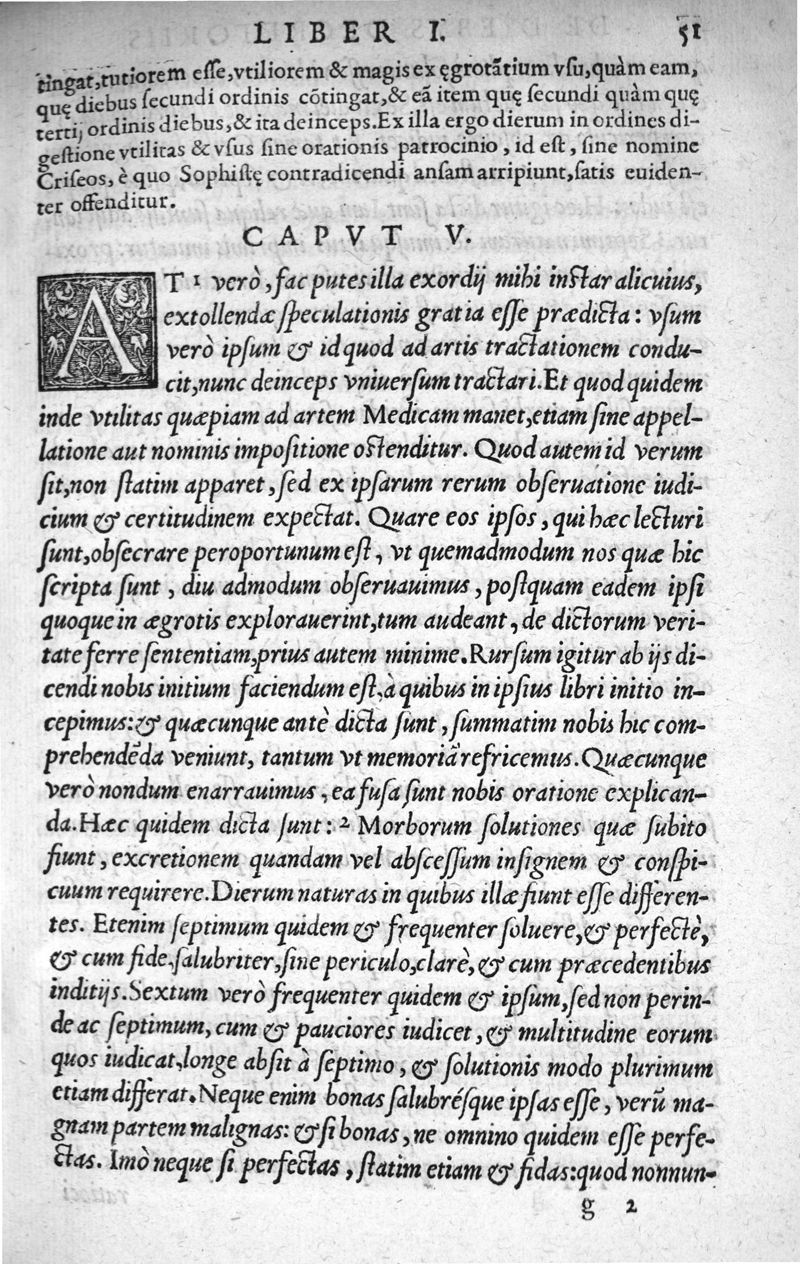 LIBER I. 51
tingat, tutiorem esse, vtiliorem & magis ex ęgrotātium vsu, quàm eam,
quę diebus secundi ordinis cōtingat, & eā item quę secundi quàm quę
tertij ordinis diebus, & ita deinceps. Ex illa ergo dierum in ordines di-
gestione vtilitas & vsus sine orationis patrocinio, id est, sine nomine
Criseos, è quo Sophistę contradicendi ansam arripiunt, satis euiden-
ter offenditur.
CAPVT V.
AT 1 verò, fac putes illa exordij mihi instar alicuius,
extollendæ speculationis gratia esse prædicta: vsum
verò ipsum & id quod ad artis tractationem condu-
cit, nunc deinceps vniuersum tractari. Et quod quidem
inde vtilitas quæpiam ad artem Medicam manet, etiam sine appel-
latione aut nominis impositione ostenditur. Quod autem id verum
sit, non statim apparet, sed ex ipsarum rerum obseruatione iudi-
cium & certitudinem expectat. Quare eos ipsos, qui hæc lecturi
sunt, obsecrare peroportunum est, vt quemadmodum nos quæ hic
scripta sunt, diu admodum obseruauimus, postquam eadem ipsi
quoque in ægrotis explorauerint, tum audeant, de dictorum veri-
tate ferre sententiam, prius autem minime. Rursum igitur ab ijs di-
cendi nobis initium faciendum est, à quibus in ipsius libri initio in-
cepimus: & quæcunque antè dicta sunt, summatim nobis hic com-
prehendēda veniunt, tantum vt memoriā refricemus. Quæcunque
verò nondum enarrauimus, ea fusa sunt nobis oratione explican-
da. Hæc quidem dicta sunt: 2 Morborum solutiones quæ subito
fiunt, excretionem quandam vel abscessum insignem & conspi-
cuum requirere. Dierum naturas in quibus illæ fiunt esse differen-
tes. Etenim septimum quidem & frequenter soluere, & perfectè,
& cum fide, salubriter, sine periculo, clarè, & cum præcedentibus
inditijs. Sextum verò frequenter quidem & ipsum, sed non perin-
de ac septimum, cum & pauciores iudicet, & multitudine eorum
quos iudicat, longe absit à septimo, & solutionis modo plurimum
etiam differat. Neque enim bonas salubrésque ipsas esse, verū ma-
gnam partem malignas: & si bonas, ne omnino quidem esse perfe-
ctas. Imò neque si perfectas, statim etiam & fidas: quod nonnun-
g 2